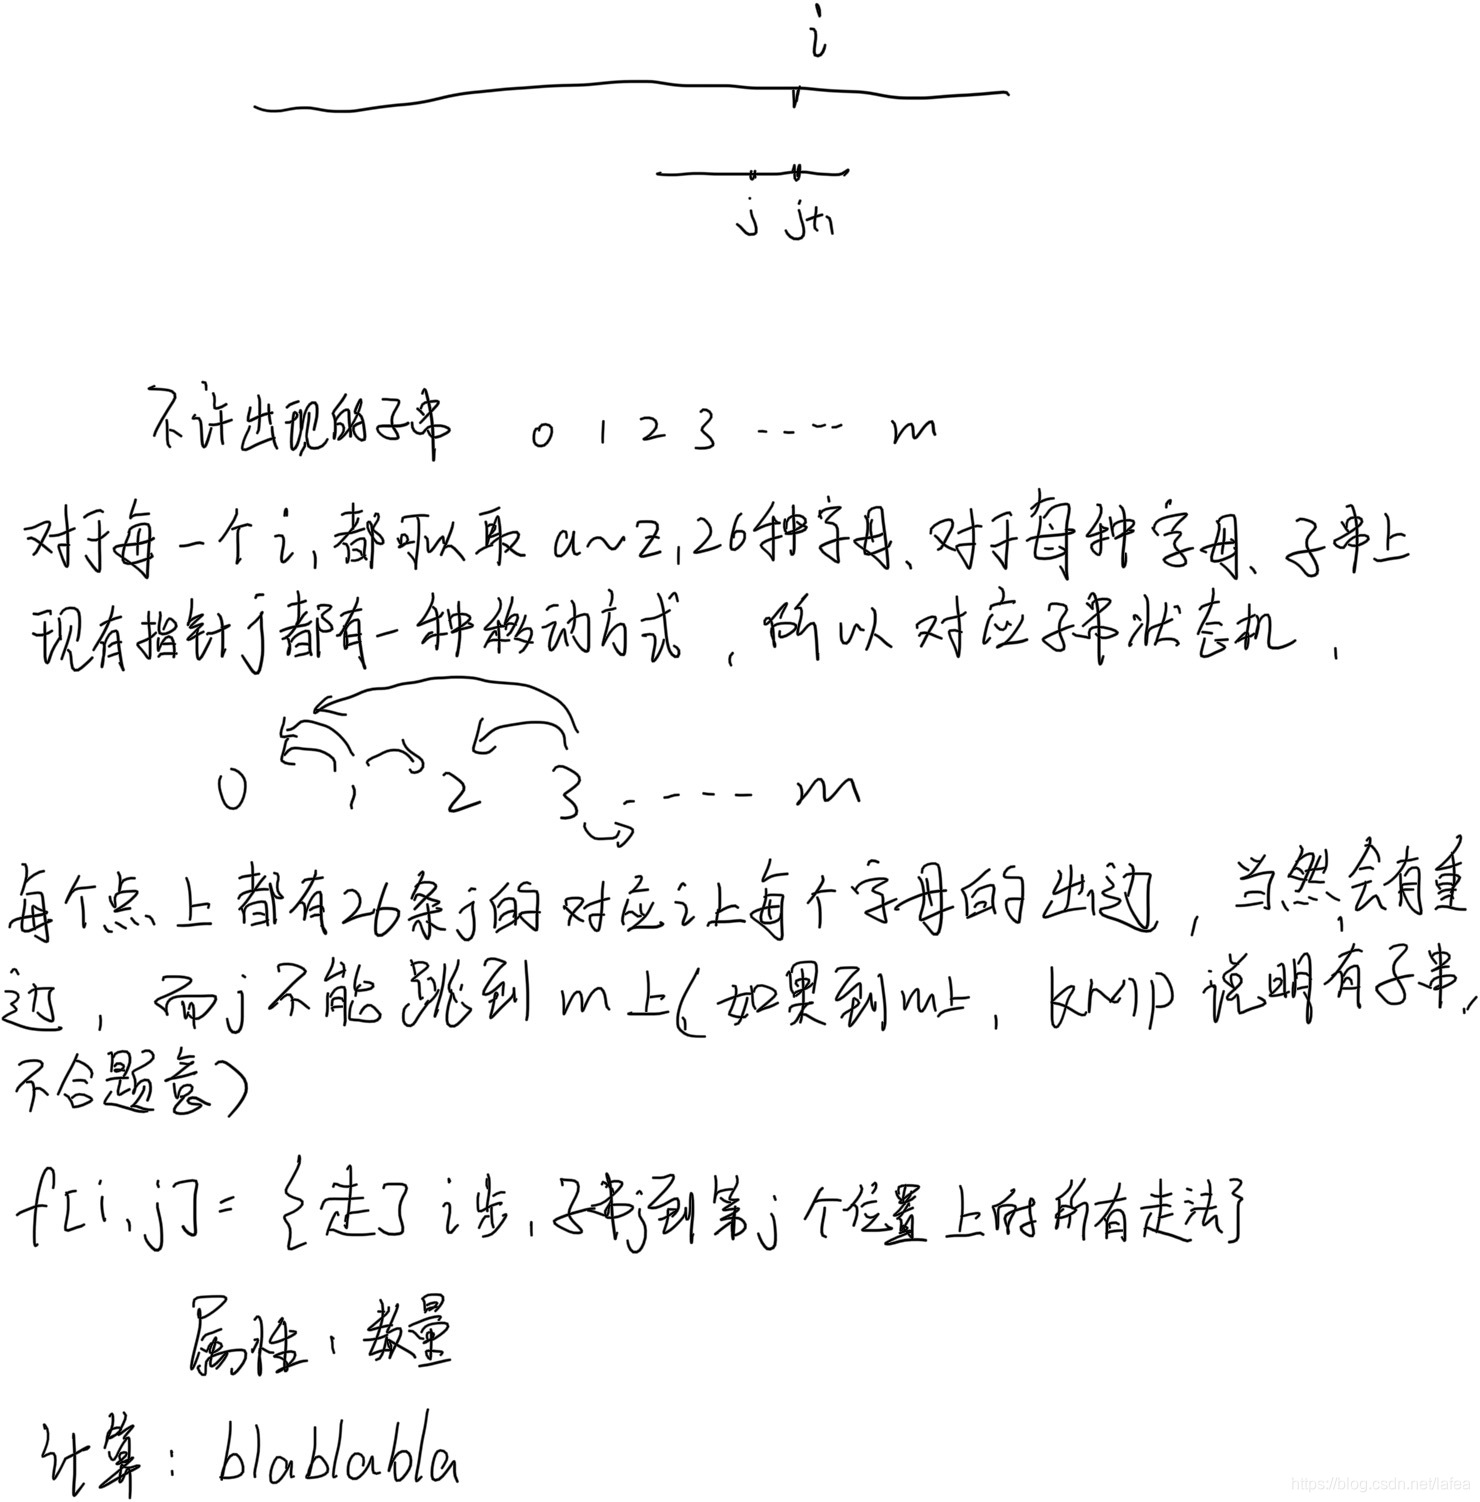 i
j j+1
不许出现的子串 0 1 2 3 ---- m
对于每一个i,都可以取 a~z,26种字母、对于每种字母、子串上
现有指针j都有一种移动方式,所以对应子串状态机,
0 1 2 3 ---- m
每个点上都有26条j的对应i上每个字母的出边,当然,会有重
边,而j不能跳到m上(如果到m上,KMP说明有子串,
不合题意)
f[i,j]= {走了i步,子串j到第j个位置上的所有走法}
属性:数量
计算:blablabla
https://blog.csdn.net/lafea